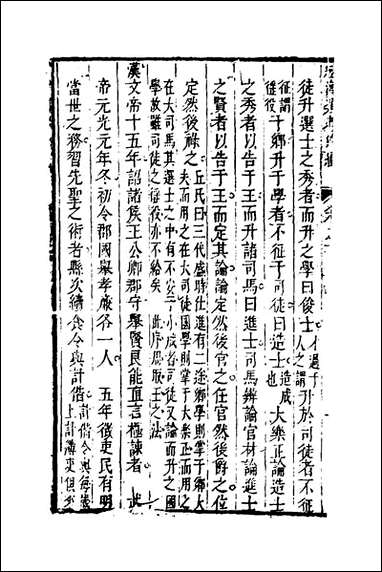 徒升選士之秀者而升之學曰俊士才過千人之謂升於司徒者不征
征謂徭役于鄉升于學者不征于司徒曰造士造成也大樂正論造士
之秀者以告于王而升諸司馬曰進士司馬辨論官材論進士
之賢者以告于王而定其論論定然後官之任官然後爵之位
定然後祿之丘氏曰三代盛時仕進有二途鄉學則掌于鄉大
夫而用之在大司徒國學則掌于大樂正而用之
在大司馬其選士之中有不安于小成者司徒又論而升之國
學故雖司徒之徭役亦不給矣此序周取士之法
漢文帝十五年詔諸侯王公卿郡守舉賢良能直言極諫者 武
帝元光元年冬初令郡國舉孝廉各一人 五年徵吏民有明
當世之務習先聖之術者縣次續食令與計偕計偕令與每歲上計簿吏但